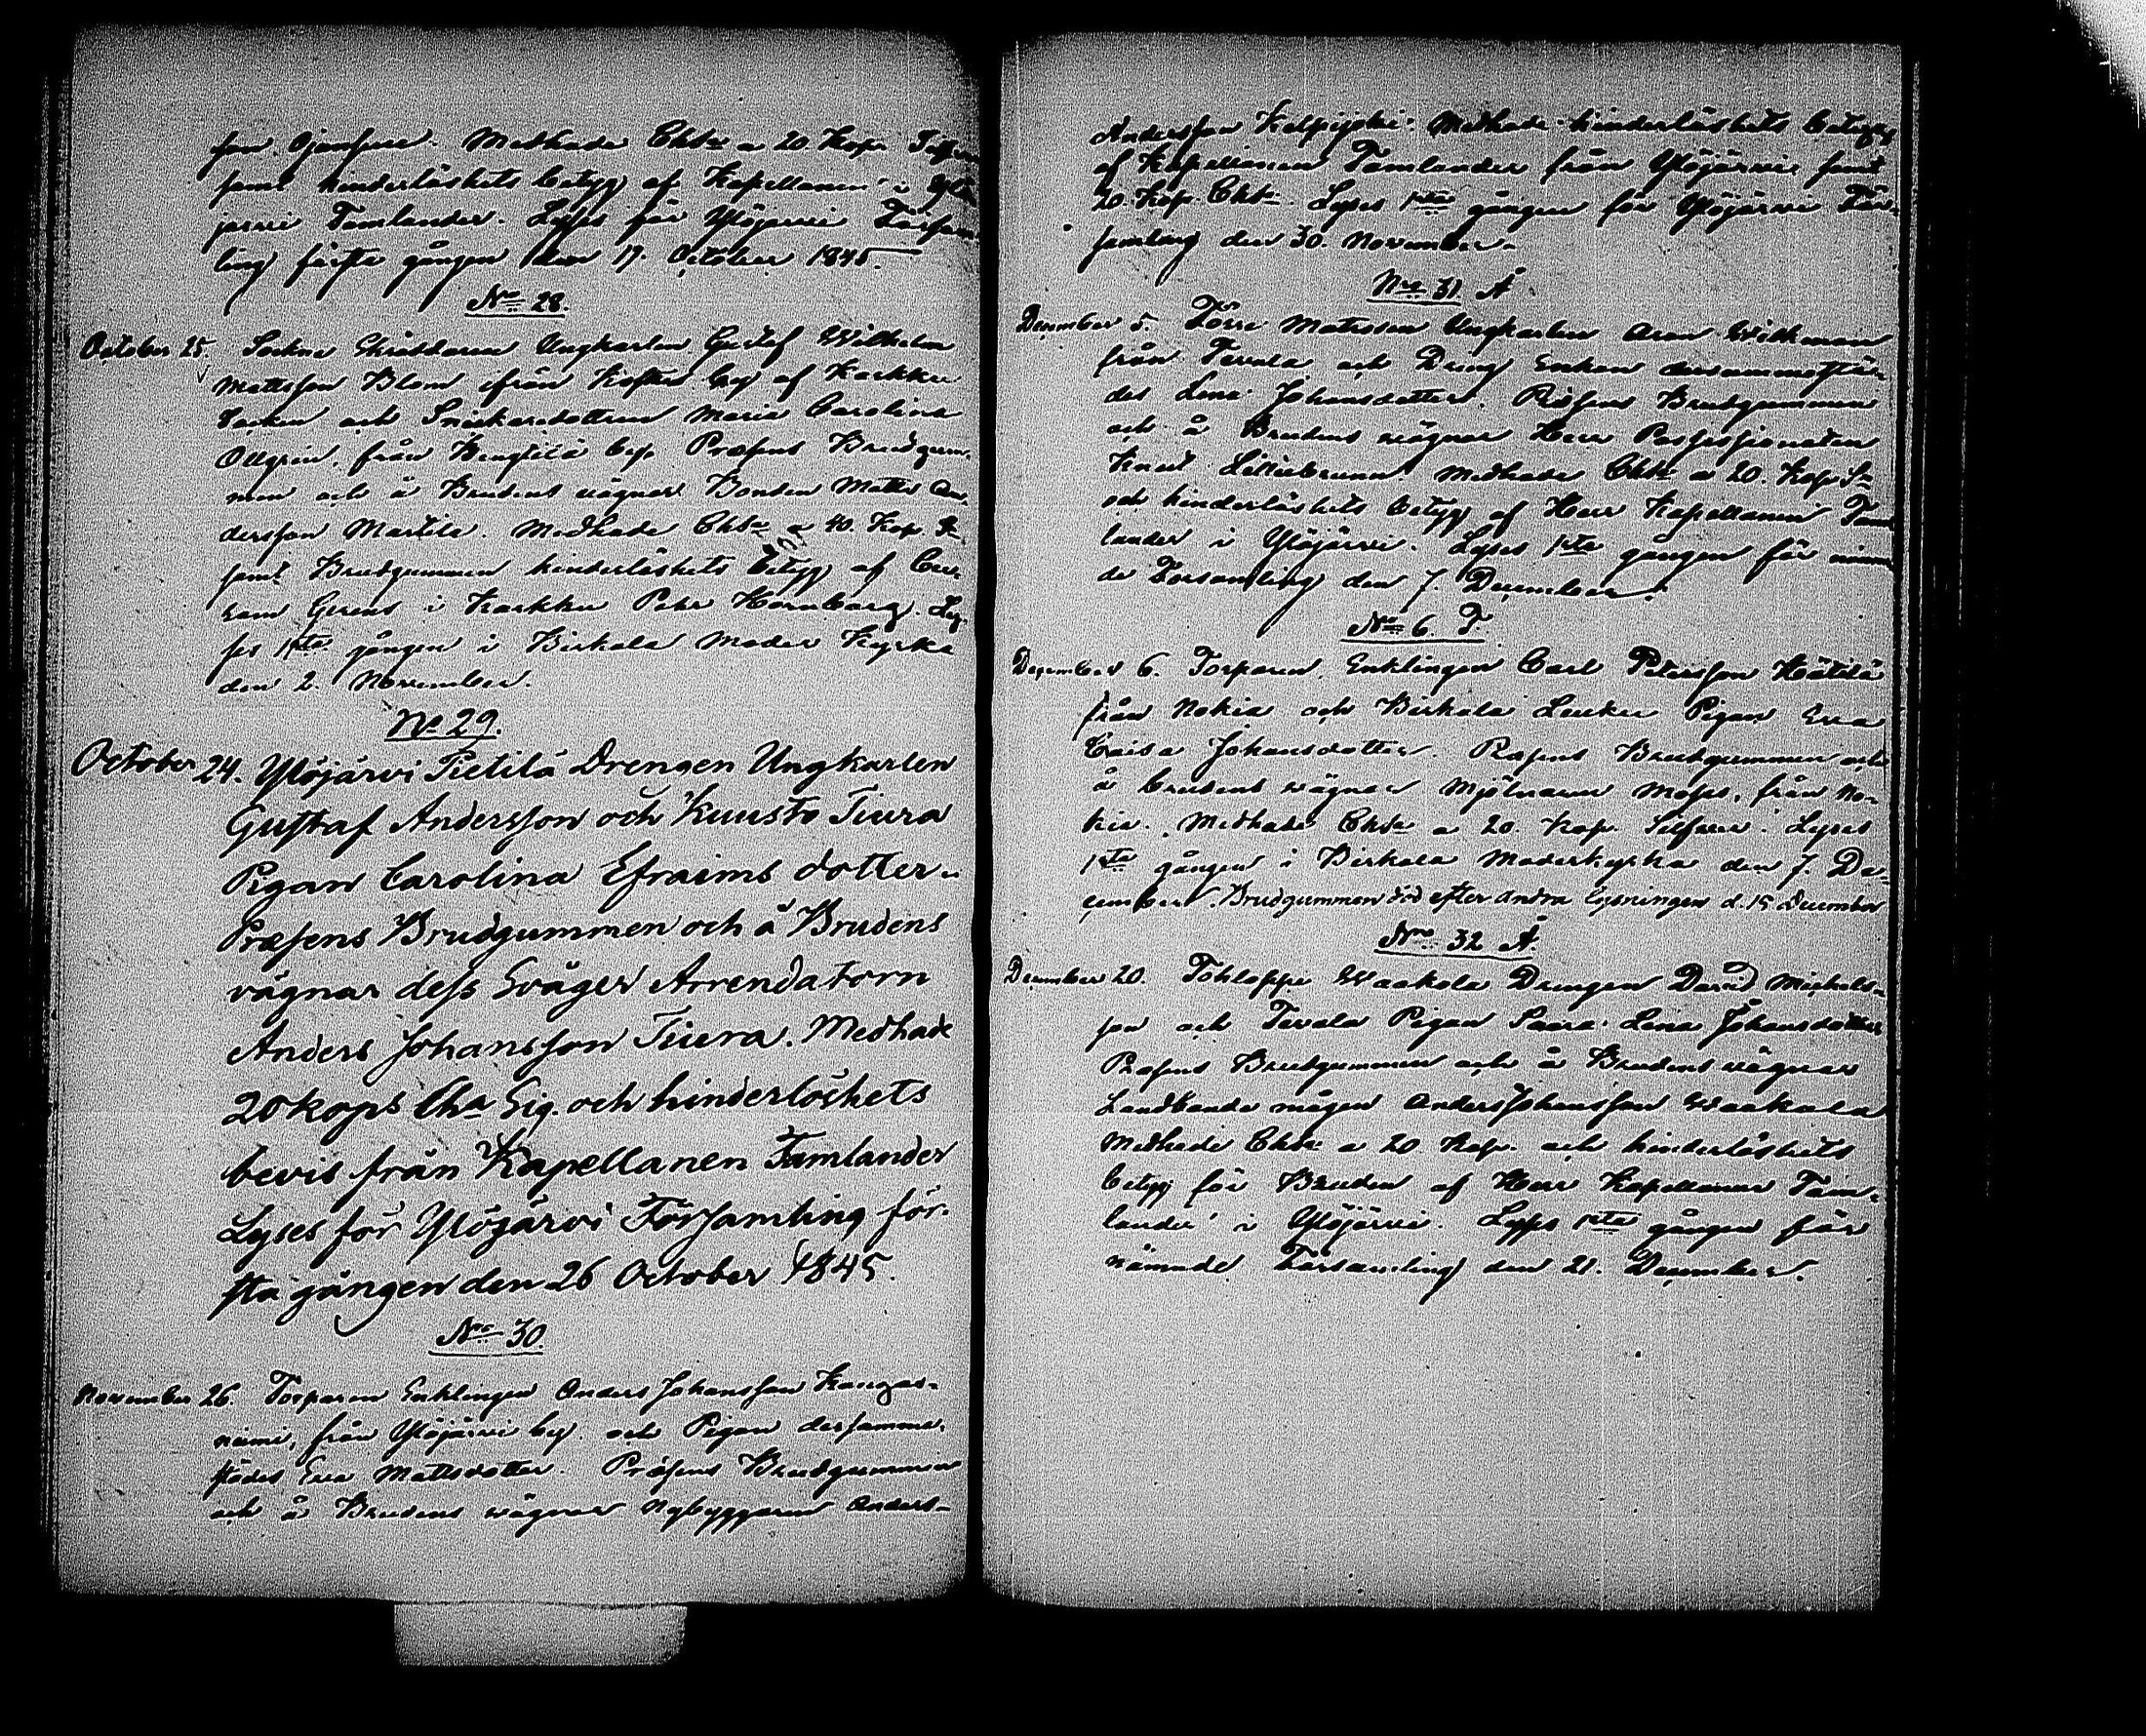 son Ojansuu. Medhade Chta a 20 Kop. Silfver
samt hinderlöshets betyg af Kapellanen i Ylö-
järvi Tamlander. Lyses för Ylöjervi Försam-
ling första gången den 19. October 1845.
No 28.
October 25. Sockne Skräddaren Ungkarlen Gustaf Wilhelm
Mattsson Blom ifrån by af Karkku
Socken och Snickaredottren Maria Carolina
Ollgrén, från by. Præsens Brudgum-
men och å Brudens vägnar Bonden Matts An-
dersson Martila. Medhade Chta a 40. Kop. Sr
samt Brudgummen hinderlöshets betyg af Cu-
ram Gerens i Karkku Petr Hornborg. Ly-
ses 1sta gången i Birkala Moder Kyrka
den 2. November.
No 29.
October 24. Ylöjärvi Pietilä Drengen Ungkarlen
Gustaf Andersson och Kuusto Tiura
Pigan Carolina Efraims dotter.
Præsens Brudgummen och å Brudens
vägnar dess Svåger Arrendatorn
Anders Johansson Tiura. Medhade
20 kops Cha Sig. och hinderlöshets
bevis från Kapellanen Tamlander
Lyses för Ylöjärvi Församling för-
sta gången den 26 October 1845.
Nro 30.
November 26. Torparen Enklingen Anders Johansson Kangas-
niemi, från Ylöjärvi by och Pigan dersamma-
städes Eva Mattsdotter. Præsens Brudgummen
och å Brudens vägnar Nybyggaren Anders-
Andersson Medhade hinderlöshets betyg
af Kapellanen Tamlander från Ylöjärvi samt
20. Kop. Chta. Lyses 1sta gången för Ylöjärvi För-
samling den 30. November.
Nro 31 Å
December 5. Förre Matrosen Ungkarlen Aron Wikman
från Tevala och Dreng Enkan darsammastä-
des Lena Johansdotter. Præsens Brudgummen
och å Brudens vägnar Herr Possessionaten
Knut Liliebrunn. Medhade Chta a 20. Kop. Sr
och hinderlöshets betyg af Herr Kapellanen Tam-
lander i Ylöjärvi. Lyses 1sta gången för nämn-
de Församling den 7. December.
No 6. F.
December 6. Torparen, Enklingen Carl Petersson Kätilä
från Nokia och Birkala Pigan Eva
Caisa Johansdotter. Præsens Brudgummen och
å brudens vägnar Mjölnaren Moses, från No-
kia. Medhade Chta a 20. Kop. Silfver. Lyses
1sta gången i Birkala Moderkyrka den 7. De-
cember. Brudgummen död efter andra Lysningen d. 15 December
Nro 32 Å.
December 20. Tohloppi Waakola Drengen David Michels-
son och Tevala Pigan Lena Johansdotter
Præsens Brudgummen och å Brudens vägnar
Landbonde mågen Anders Johansson Waakola
Medhade Chta a 20. Kop. och hinderlöshets
betyg för Bruden af Herr Kapellanen Tam-
lander i Ylöjärvi. Lyses 1sta gången för
nämnde Församling den 21. December.